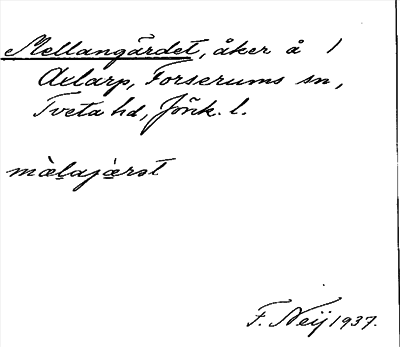 Mellangärdet, åker å 1
Axlarp, Forserums sn,
Tveta hd, Jönk. l.
mæ̀lajæ̀rət
F. Neij 1937.